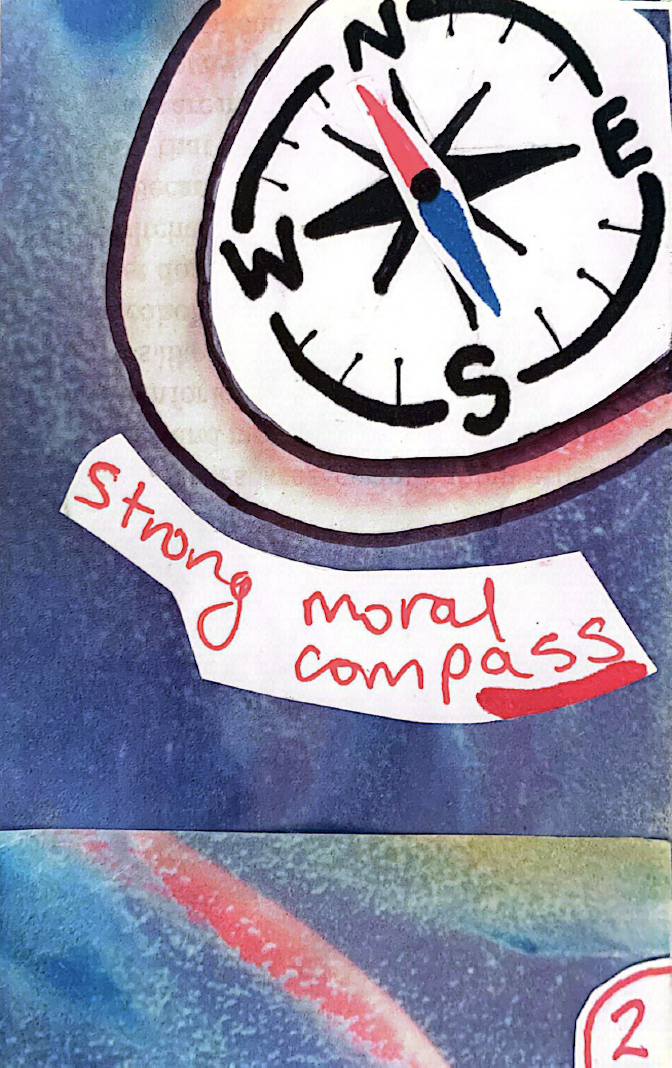 N
E
W
S
Strong moral
compass
2